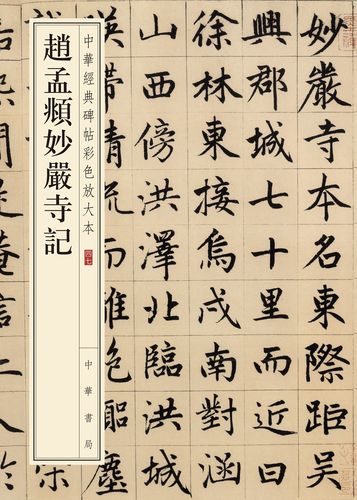 趙孟頫妙嚴寺記
中華經典碑帖彩色放大本
四七
中華書局
妙嚴寺本名東際距吳
興郡城七十里而近曰
徐林東接烏戍南對涵
山西傍洪澤北臨洪城
塵